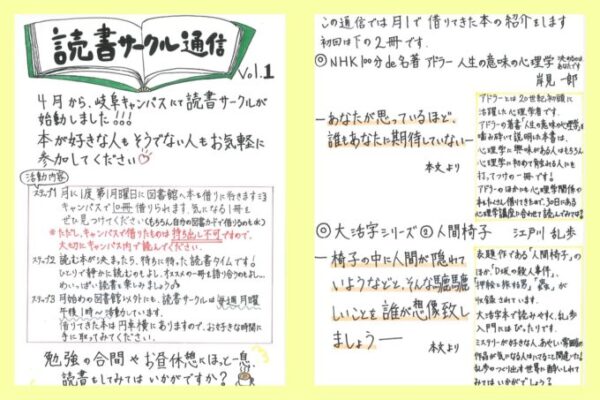 読書サークル通信
Vol.1
4月から、岐阜キャンパスにて読書サークルが
始動しました!!!
本が好きな人もそうでない人もお気軽に
参加してください
活動内容
ステップ1 月に1度第1月曜日に図書館へ本を借りに行きます
キャンパスで10冊借りられます。気になる1冊を
ぜひ見つけてください(もちろん自分の図書カードで借りるのもok)
*ただし、キャンパスで借りたものは持ち出し不可ですので、
大切にキャンパス内で読んでください。
ステップ2 読む本が決まったら、待ちに待った読書タイムです!
ひとりで静かに読むのもよし、オススメの一冊を語り合うのもよし…
めいっぱい読書を楽しみましょう
ステップ3 月始めの図書館以外にも、読書サークルは毎週月曜
午後1時〜活動しています。
借りてきた本は円卓横にありますので、お好きな時間に
手に取ってみてください。
勉強の合間やお昼休憩にほっと一息、
読書をしてみてはいかがですか?
この通信では月1で借りてきた本の紹介をします
初回は下の2冊です。
◎NHK100分de名著 アドラー 人生の意味の心理学
岸見一郎
―あなたが思っているほど、
誰もあなたに期待していない―
本文より
アドラーとは20世紀初頭に
活躍した心理学者です。
アドラーの著書「人生の意味の心理学」を
噛み砕いて説明した本書は、
心理学に興味がある人はもちろん
心理学に初めて触れる人にも
打ってつけの一冊です。
アドラーのほかにも心理学関係の
本もたくさん借りてきたので、30日にある
心理学講座に合わせて読んでみては
◎大活字シリーズ② 人間椅子 江戸川 乱歩
―椅子の中に人間が隠れて
いようなどと、そんな馬鹿馬鹿
しいことを誰が想像致し
ましょう―
本文より
表題作である「人間椅子」の
ほか、「D坂の殺人事件」、
「押絵と旅する男」「蟲」が
収録されています。
大活字本で読みやすく、乱歩
入門にはぴったりです。
ミステリーが好きな人、あやしい雰囲気の
作品が気になる人はハマること間違いなし
乱歩のつくり出す世界に酔いしれて
みてはいかがでしょう?